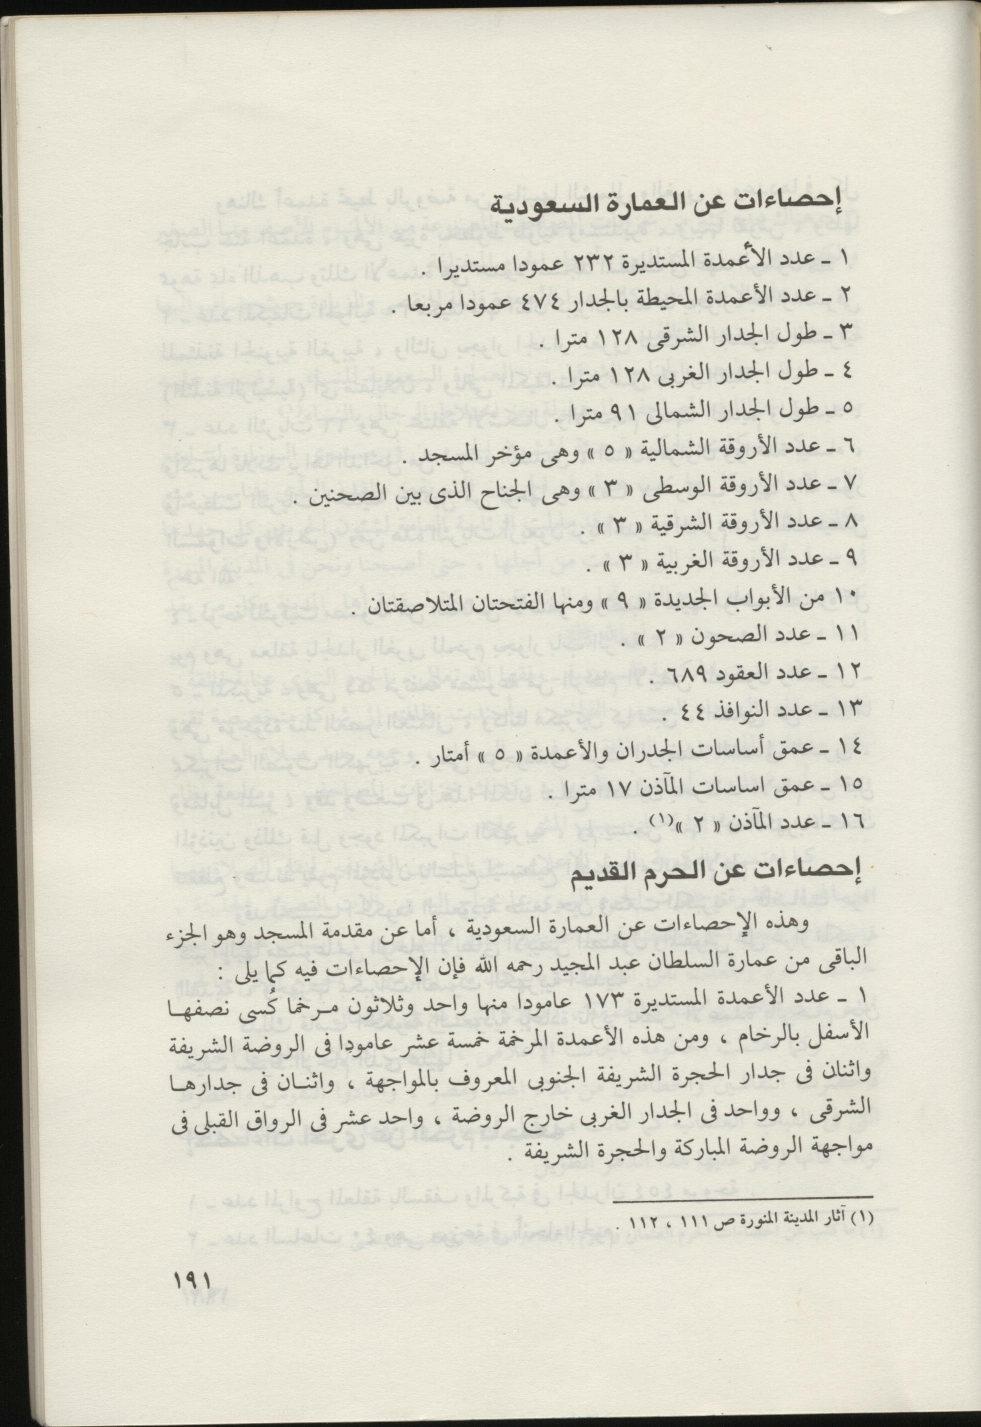 إحصاءات عن العمارة السعودية
١ ـ عدد الأعمدة المستديرة ٢٣٢ عمودا مستديرا .
٢ ـ عدد الأعمدة المحيطة بالجدار ٤٧٤ عمودا مربعا .
٣ ـ طول الجدار الشرقى ١٢٨ مترا .
٤ ـ طول الجدار الغربى ١٢٨ مترا .
٥ ـ طول الجدار الشمالى ٩١ مترا .
٦ ـ عدد الأروقة الشمالية « ٥ » وهى مؤخر المسجد .
٧ ـ عدد الأروقة الوسطى « ٣ » وهى الجناح الذى بين الصحنين .
٨ ـ عدد الأروقة الشرقية « ٣ » .
٩ ـ عدد الأروقة الغربية « ٣ » .
١٠ من الأبواب الجديدة « ٩ » ومنها الفتحتان المتلاصقتان .
١١ ـ عدد الصحون « ٢ » .
١٢ ـ عدد العقود ٦٨٩ .
١٣ ـ عدد النوافذ ٤٤ .
١٤ ـ عمق أساسات الجدران والأعمدة « ٥ » أمتار .
١٥ ـ عمق اساسات المآذن ١٧ مترا .
١٦ ـ عدد المآذن « ٢ »(١) .
إحصاءات عن الحرم القديم
وهذه الإحصاءات عن العمارة السعودية ، أما عن مقدمة المسجد وهو الجزء
الباقى من عمارة السلطان عبد المجيد رحمه الله فإن الإحصاءات فيه كما يلى :
١ ـ عدد الأعمدة المستديرة ١٧٣ عامودا منها واحد وثلاثون مـرخما كُسى نصفهـا
الأسفل بالرخام ، ومن هذه الأعمدة المرخمة خمسة عشر عامودا فى الروضة الشريفة
واثنان فى جدار الحجرة الشريفة الجنوبى المعروف بالمواجهة ، واثنـان فى جدارهـا
الشرقى ، وواحد فى الجدار الغربى خارج الروضة ، واحد عشر فى الرواق القبلى فى
مواجهة الروضة المباركة والحجرة الشريفة .
(١) آثار المدينة المنورة ص ١١١ ، ١١٢ .
١٩١